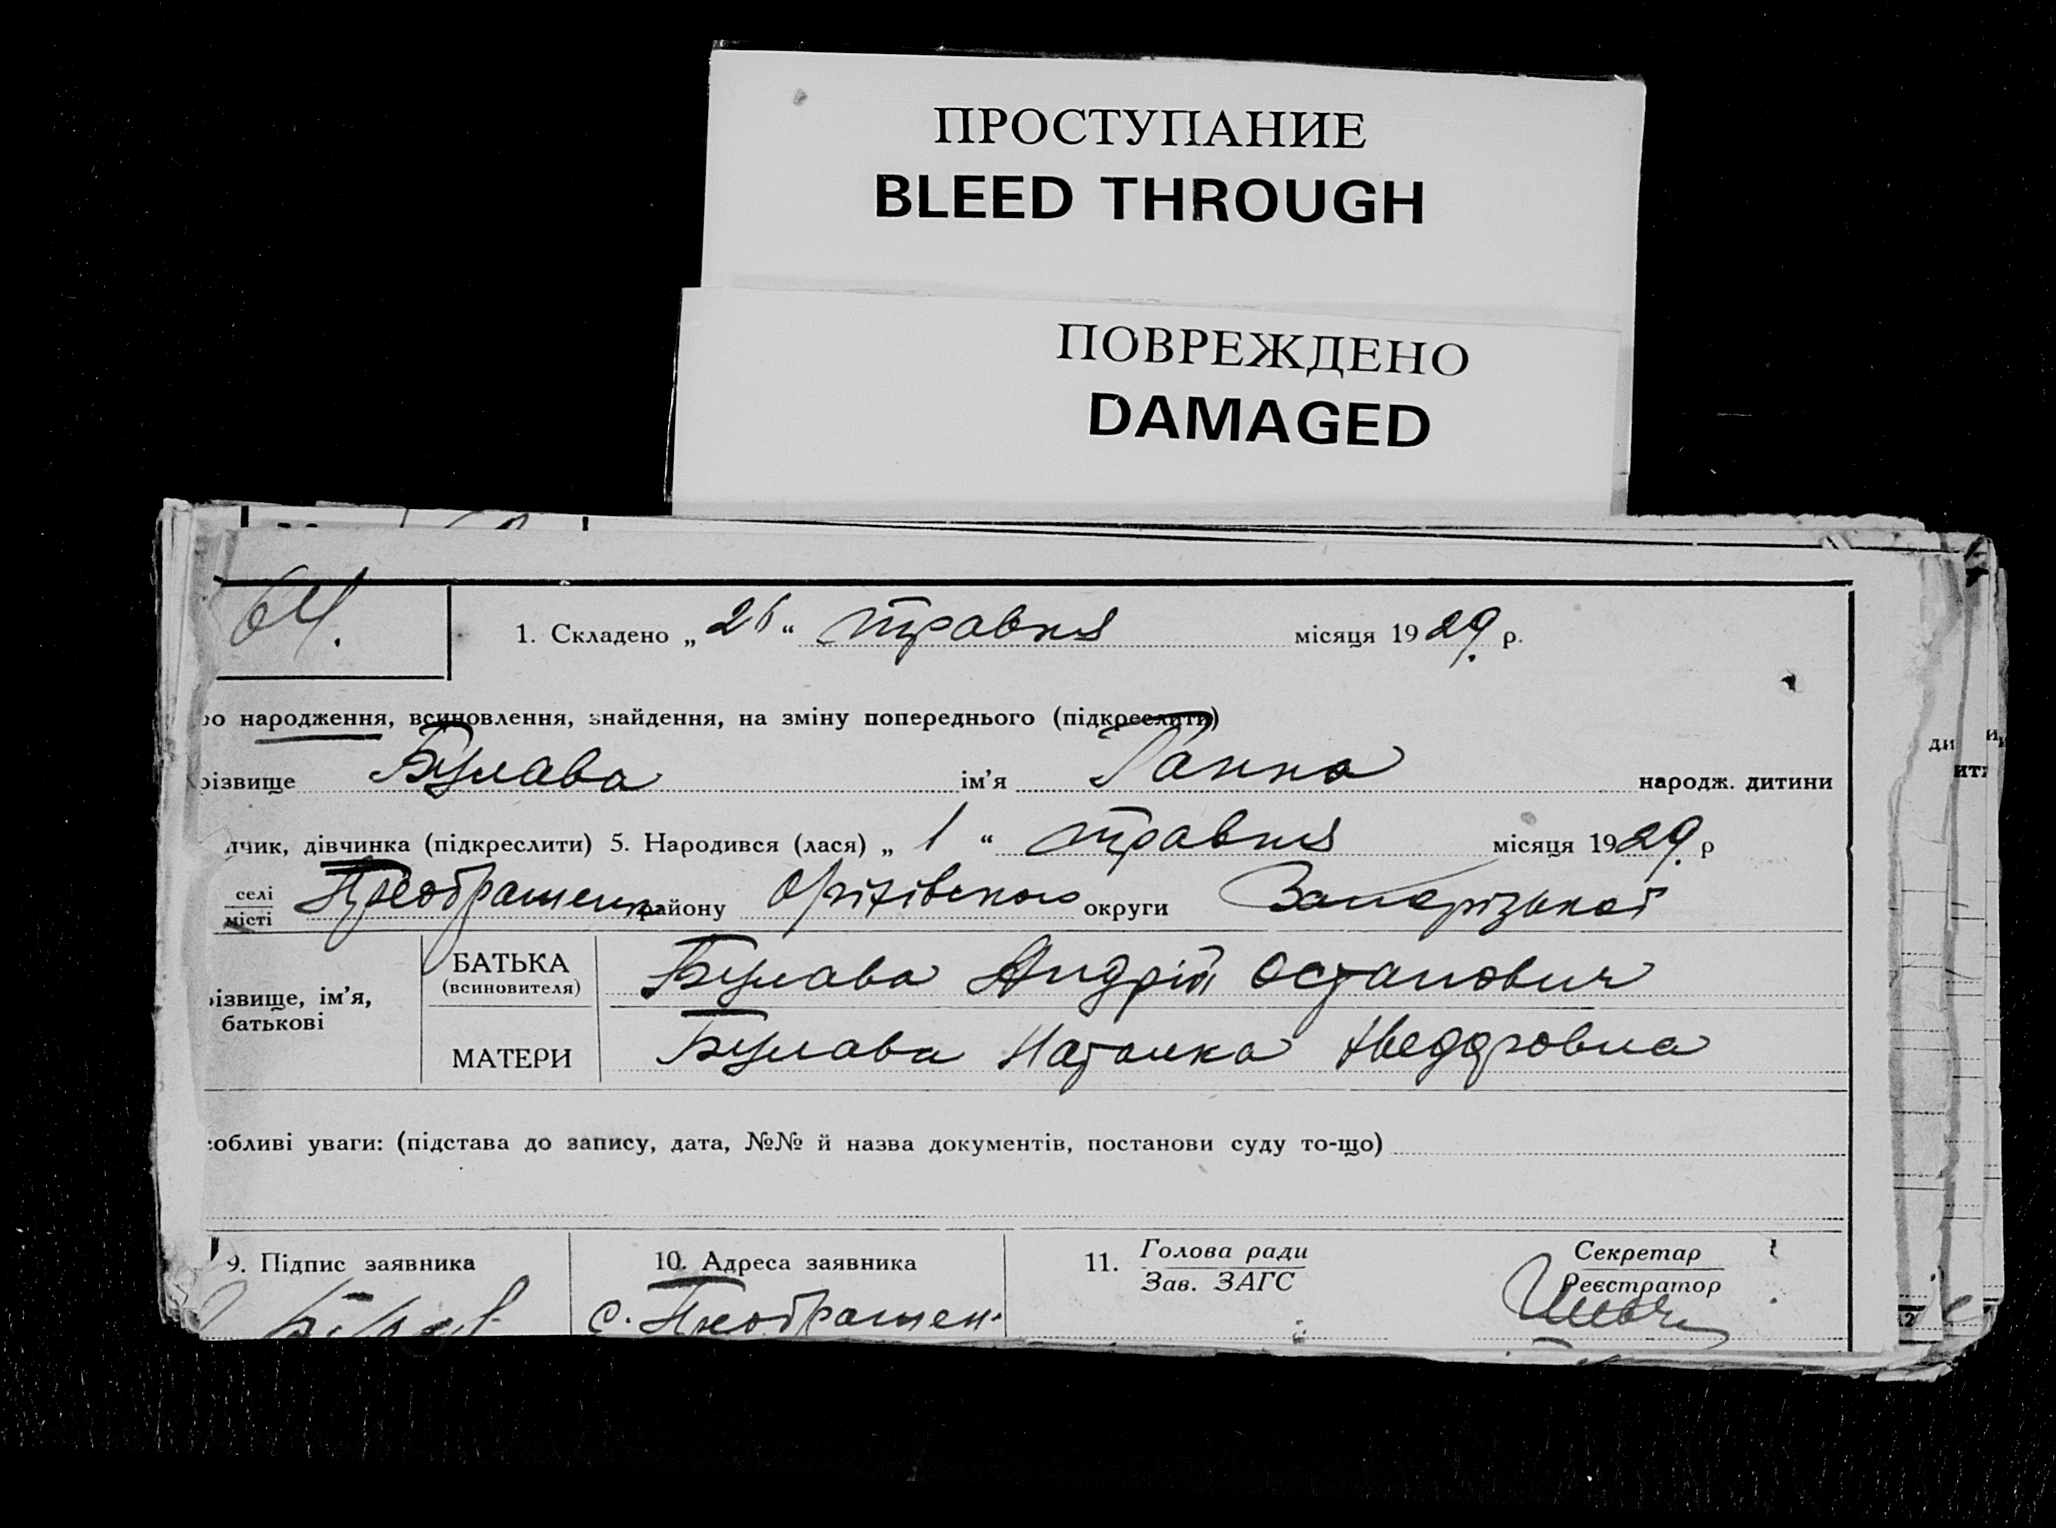 ПРОСТУПАНИЕ
BLEED THROUGH
ПОВРЕЖДЕНО
DAMAGED
64.
1. Складено „ 26 “ травня місяця 1929. р.
ро народження, всиновлення, знайдення, на зміну попереднього (підкреслити)
різвище Булава ім’я Ганна народж. дитини
пчик, дівчинка (підкреслити) 5. Народився (лася) „ 1 “ травня місяця 1929. р
селі
місті Преображенк району Оріхівського округи Запорізької
БАТЬКА
(всиновителя) Булава Андрій Остапович
різвище, ім’я,
батькові
МАТЕРИ Булава Наталка Федоровна
собливі уваги: (підстава до запису, дата, №№ й назва документів, постанови суду то-що)
9. Підпис заявника 10. Адреса заявника 11. Голова ради Секретар
Зав. ЗАГС Реєстратор
с. Преображен.